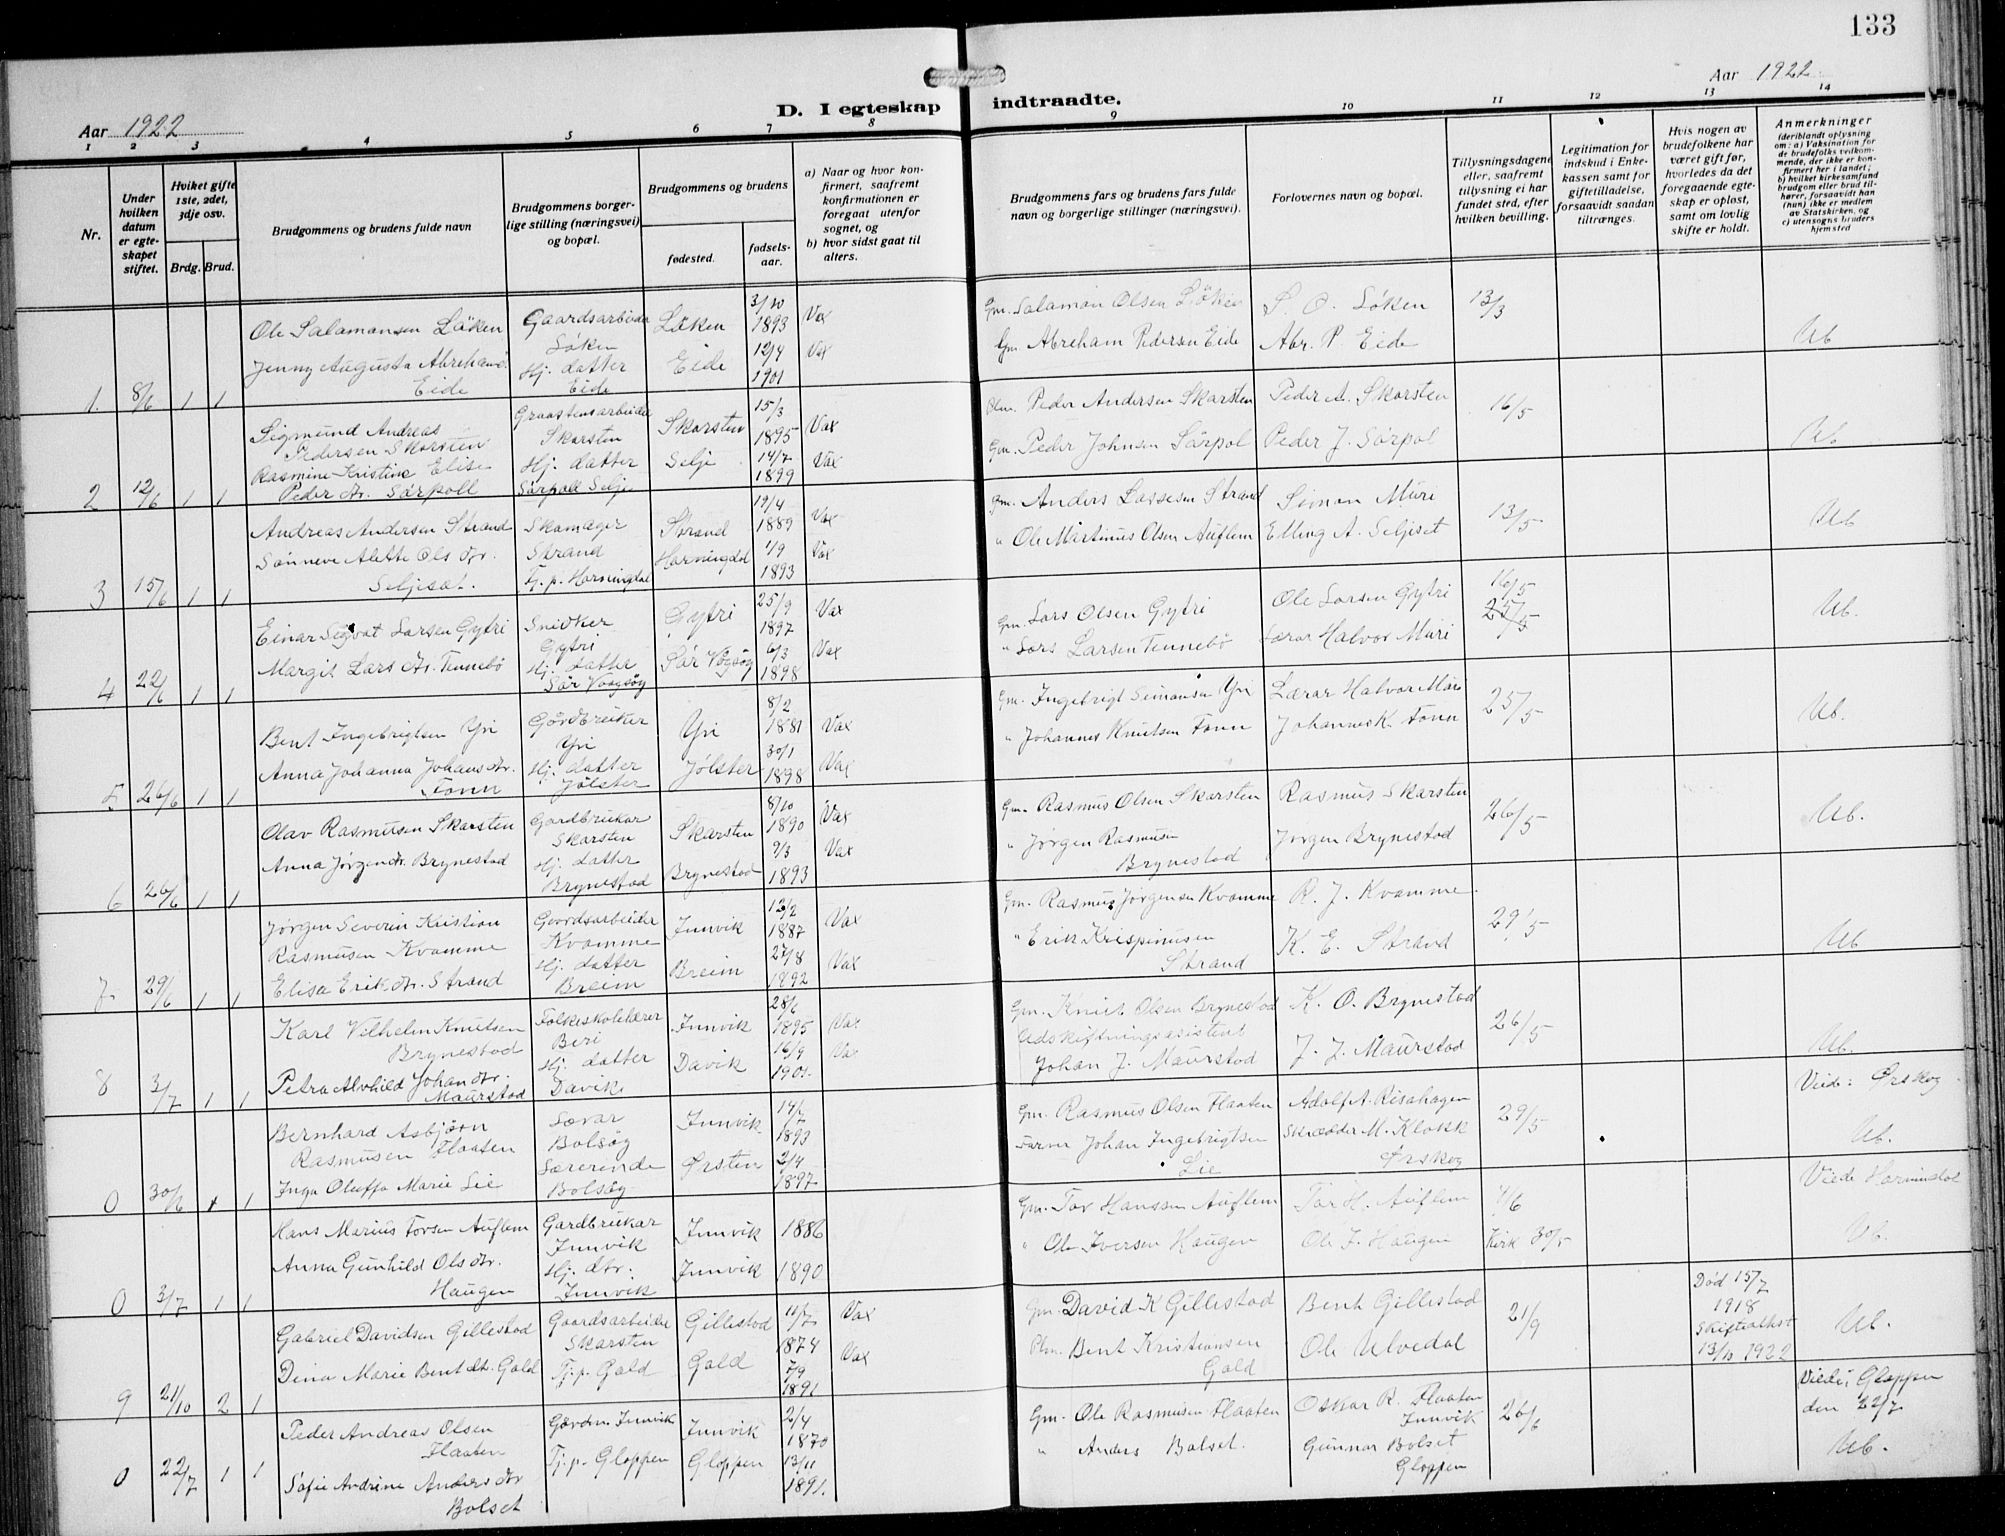 133
Aar 1922
Aar 1922
D. I egteskap indtraadte.
1 2 3 4 5 6 7 8 9 10 11 12 13 14
Nr.
Under
hvilken
datum
er egte-
skapet
stiftet.
Hvilket gifte
1ste, 2det,
3dje osv.
Brdg. Brud.
Brudgommens og brudens fulde navn
Brudgommens borger-
lige stilling (næringsvei)
og bopæl.
Brudgommens og brudens
fødested.
fødsels-
aar.
a) Naar og hvor kon-
firmert, saafremt
konfirmationen er
foregaat utenfor
sognet, og
b) hvor sidst gaat til
alters.
Brudgommens fars og brudens fars fulde
navn og borgerlige stillinger (næringsvei).
Forlovernes navn og bopæl.
Tillysningsdagene
eller, saafremt
tillysning ei har
fundet sted, efter
hvilken bevilling.
Legitimation for
indskud i Enke-
kassen samt for
giftetilladelse,
forsaavidt saadan
tiltrænges.
Hvis nogen av
brudefolkene har
været gift før,
hvorledes da det
foregaaende egte-
skap er opløst,
samt om lovlig
skifte er holdt.
Anmerkninger
(deriblandt oplysning
om: a) Vaksination for
de brudefolks vedkom-
mende, der ikke er kon-
firmert her i landet;
b) hvilket kirkesamfund
brudgom eller brud til-
hører, forsaavidt han
(hun) ikke er medlem
av Statskirken, og
c) utensogns bruders
hjemsted
1. 8/6 1 1
Ole Salamonsen Löken
Jenny Augusta Abrehams.
Eide
Gaardsarbeider
Löken
Hj. datter
Eide
Löken
Eide
3/10
1893
12/4
1901
Vax
Vax
Gm. Salamon Olsen Löken
Gm. Abreham Pedersen Eide
S. O. Löken
Abr. P. Eide
13/3
Ub
2 12/6 1 1
Sigmund Andreas
Pedersen Skarsten
Rasmine Kristine Elise
Peder dr. Sörpoll
Graastensarbeider
Skarsten
Hj. datter
Sörpoll Selje
Skarsten
Selje
15/3
1895
14/7
1899
Vax
Vax
Plm. Peder Andersen Skarsten
Gm. Peder Johnsen Sörpol
Peder A. Skorsten
Peder J. Sörpol
16/5
Ub
3 15/6 1 1
Andreas Andersen Strand
Sönneve Alette Ols dr.
Seljeset.
Skomager
Strand
Tj. p. Horningdal
Strand
Horningdal
19/4
1889
1/9
1893
Vax
Vax
Gm. Anders Larsesen Strand
" Ole Martinus Olsen Auflem
Simon Muri
Elling A. Seljeset
13/5
Ub
4 22/6 1 1
Einar Sigvat Larsen Gytri
Margit Lars dr. Tennebö
Snidker
Gytri
Hj. datter
Sör Vaagsöy
Gytri
Sör Vågsöy
25/9
1897
6/3
1898
Vax
Vax
Gm. Lars Olsen Gytri
" Lars Larsen Tennebø
Ole Larsen Gytri
Lærar Halvor Muri
16/5
25/5
Ub.
5. 26/6 1 1
Bent Ingebrigtsen Yri
Anna Johanna Johans dr.
Fonn
Gårdbruker
Yri
Hj. datter
Jölster
Yri
Jölster
8/2
1881
30/1
1898
Vax
Vax
Gm. Ingebrigt Simonsen Yri
" Johannes Knutsen Fonn
Lærar Halvor Muri
Johannes K. Fonn
25/5
Ub.
6 26/6 1 1
Olav Rasmusen Skarsten
Anna Jørgen dr. Brynestad
Gardbrukar
Skarsten
Hj. datter
Brynestad
Skarsten
Brynestad
8/10
1890
9/3
1893
Vax
Vax
Gm. Rasmus Olsen Skarsten
" Jørgen Rasmusen
Brynestad
Rasmus Skarsten
Jørgen Brynestad
26/5
Ub.
7. 29/6 1 1
Jørgen Severin Kristian
Rasmusen Kvamme
Elisa Erik dr. Strand
Gaardsarbeider
Kvamme
Hj. datter
Breim
Innvik
Breim
12/2
1887
27/8
1892
Vax
Vax
Gm. Rasmus Jørgensen Kvamme
" Erik Krispinusen
Strand
R. J. Kvamme
K. E. Strand
29/5
Ub
8 3/7 1 1
Karl Vilhelm Knutsen
Brynestad
Petra Alvhild Johan dr.
Maurstad
Folkeskolelærer
Beri
Hj. datter
Davik
Innvik
Davik
28/6
1895
16/9
1901.
Vax
Vax
Gm. Knut Olsen Brynestad
Udskiftningsasistent
Johan J. Maurstad
K. O. Brynestad
J. J. Maurstad
26/5
Ub.
0 30/6 1 1
Bernhard Asbjørn
Rasmusen Flaaten
Inga Oluffa Marie Lie
Lærar
Bolsöy
Lærerinde
Bolsöy
Innvik
Ørsten
14/7
1893
2/4
1897
Gm. Rasmus Olsen Flaaten
Farver Johan Ingebrigtsen
Lie
Adolf A. Risahagen
Skrædder M. Klokk
Ørskog
29/5
Viede: Ørskog
Ub.
0 3/7 1 1
Hans Marius Torsen Auflem
Anna Gunhild Ols dr.
Haugen
Gardbrukar
Innvik
Hj. dtr.
Innvik
Innvik
Innvik
1886
1890
Gm. Tor Hanssen Auflem
" Ole Iversen Haugen
Tor H. Auflem
Ole J. Haugen
4/6
Kirk 30/5
Viede Hornindal
Ub.
9 21/10 2 1
Gabriel Davidsen Gillestad
Dina Marie Bent dt. Gald
Gaardsarbeider
Skarsten
Tj. p. Gald
Gillestad
Gald
11/7
1874
7/9
1891
Vax
Vax
Gm. David K Gillestad
Plm. Bent Kristiansen
Gald
Bent Gillestad
Ole Ulvedal
21/9
Död 15/7
1918
Skifteattest
13/10 1922
Ub.
0 22/7 1 1
Peder Andreas Olsen
Flaaten
Sofie Andrine Anders dr
Bolset
Gårdm. Innvik
Tj. p. Gloppen
Innvik
Gloppen
2/4
1870
13/11
1891.
Gm. Ole Rasmusen Flaaten
" Anders Bolset.
Oskar R. Flaaten
Innvik
Gunnar Bolset
Gloppen
26/6
Viede: Gloppen
den 22/7
Ub.